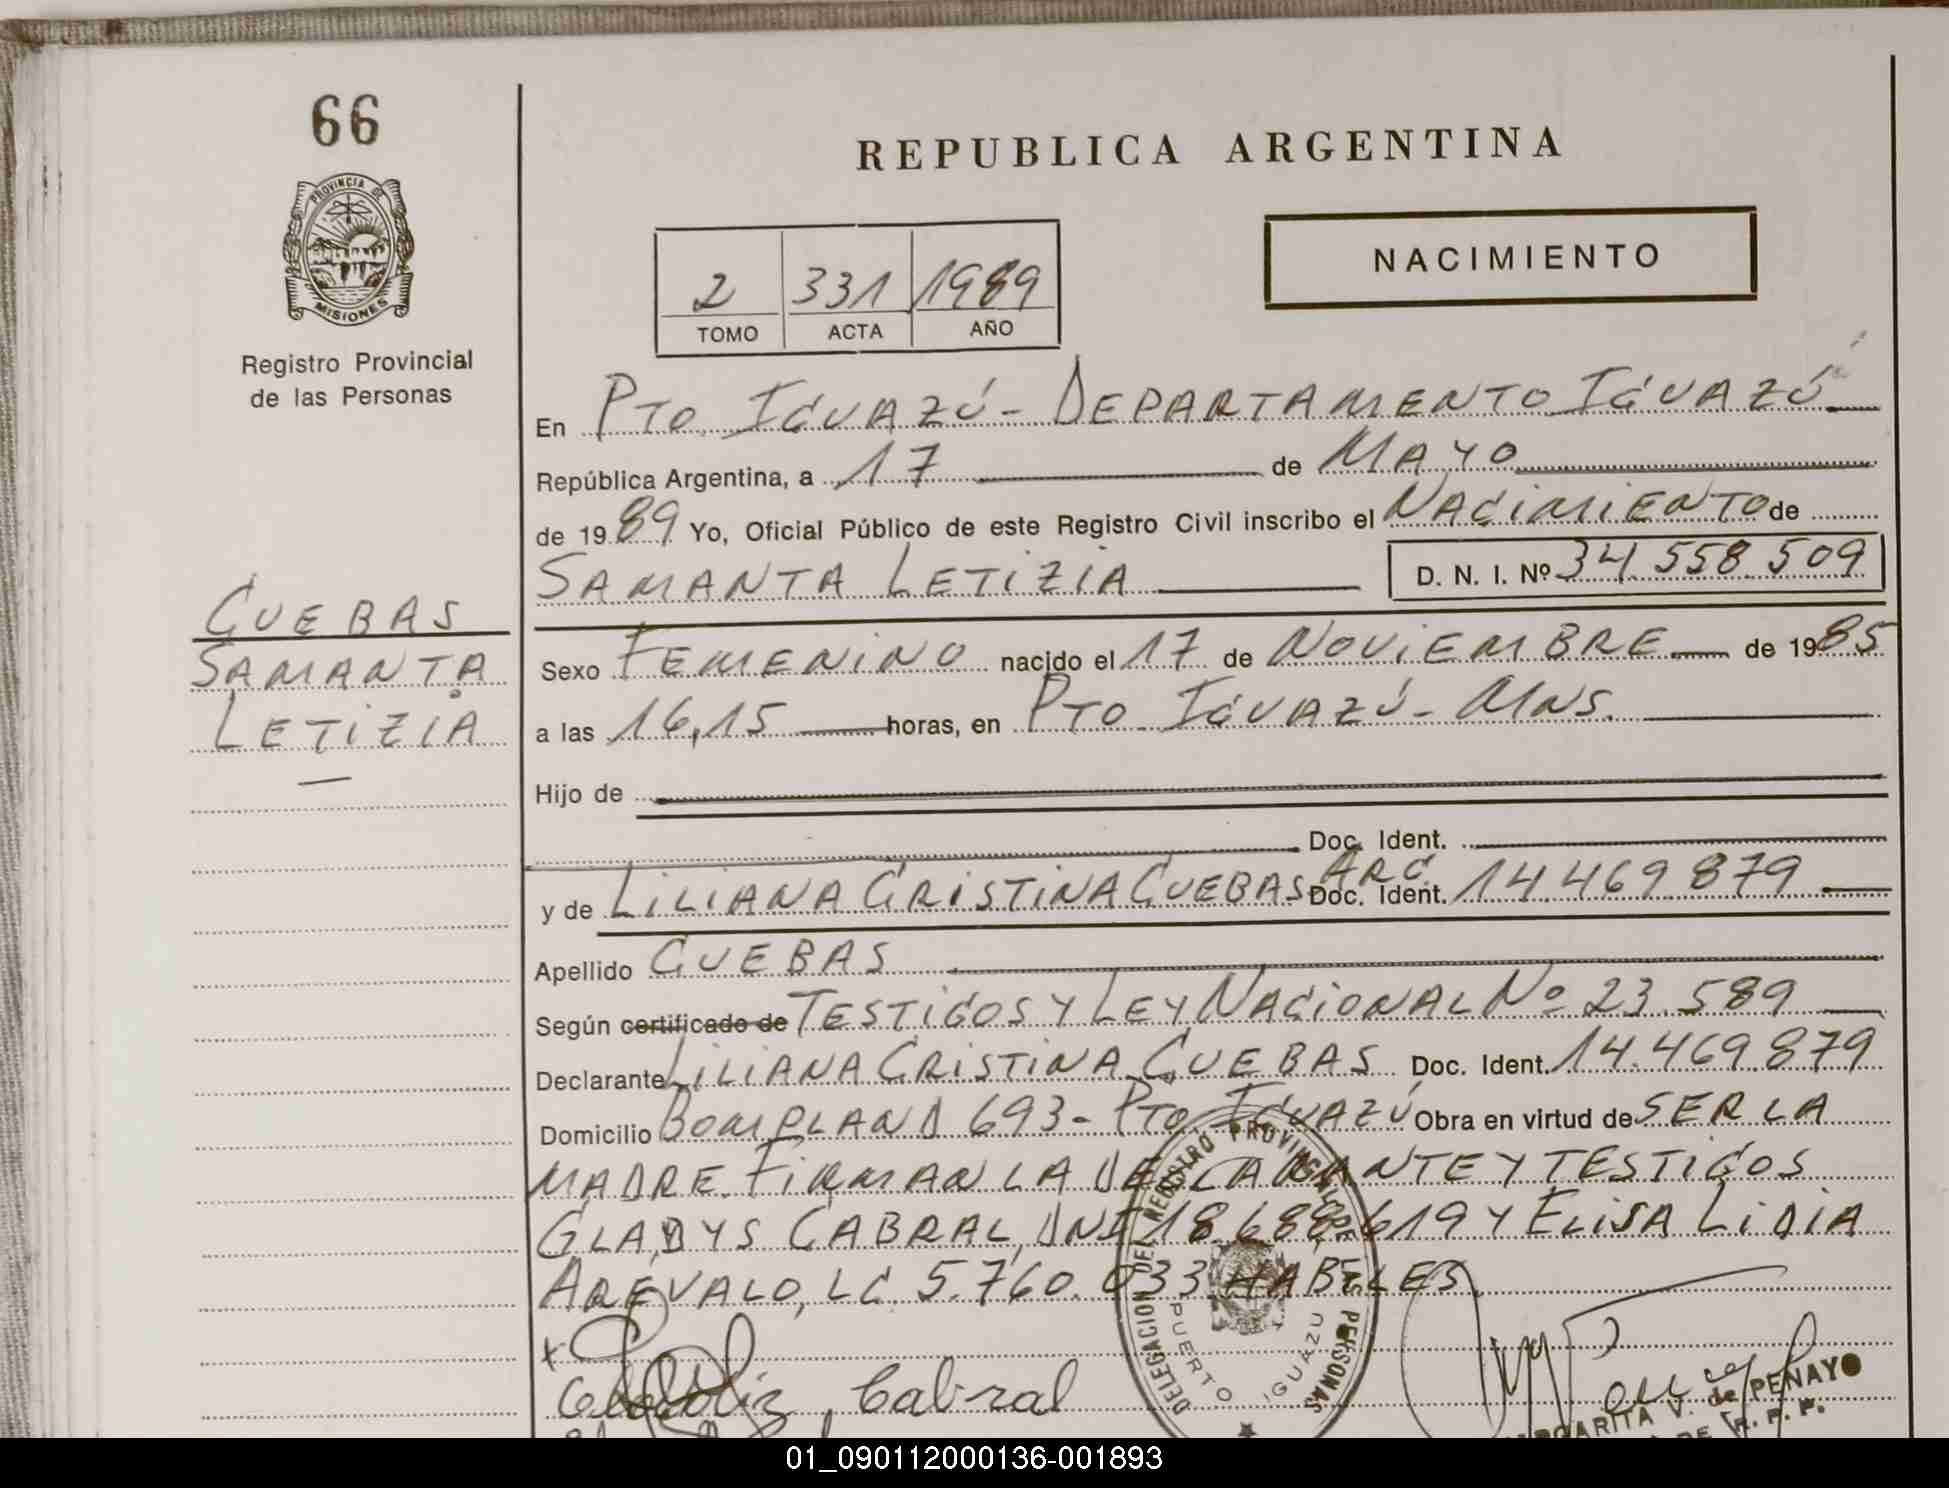 66
PROVINCIA DE
MISIONES
Registro Provincial
de las Personas
CUEBAS
SAMANTA
LETIZIA
REPUBLICA ARGENTINA
NACIMIENTO
2 331 1989
TOMO ACTA AÑO
En PTO. IGUAZÚ - DEPARTAMENTO IGUAZÚ
República Argentina, a 17 de MAYO
de 1989 Yo, Oficial Público de este Registro Civil inscribo el NACIMIENTO de
SAMANTA LETIZIA D. N. I. Nº 34.558.509
Sexo FEMENINO nacido el 17 de NOVIEMBRE de 1985
a las 16,15 horas, en PTO IGUAZÚ - MNS.
Hijo de
Doc. Ident.
y de LILIANA CRISTINA CUEBAS ARG. Doc. Ident. 14.469.879
Apellido CUEBAS
Según certificado de TESTIGOS Y LEY NACIONAL Nº 23.589
Declarante LILIANA CRISTINA CUEBAS Doc. Ident. 14.469.879
Domicilio BOMPLAND 693 - PTO IGUAZÚ Obra en virtud de SER LA
MADRE. FIRMAN LA DECLARANTE Y TESTIGOS
GLADYS CABRAL, DNI 18.688.619 Y ELISA LIDIA
AREVALO, LC 5.760.033 HABILES.
DELEGACION DEL REGISTRO PROVINCIAL DE LAS PERSONAS
PUERTO IGUAZU
Cabral
MARGARITA V. de PENAYO
DE R. P. P.
01_090112000136-001893